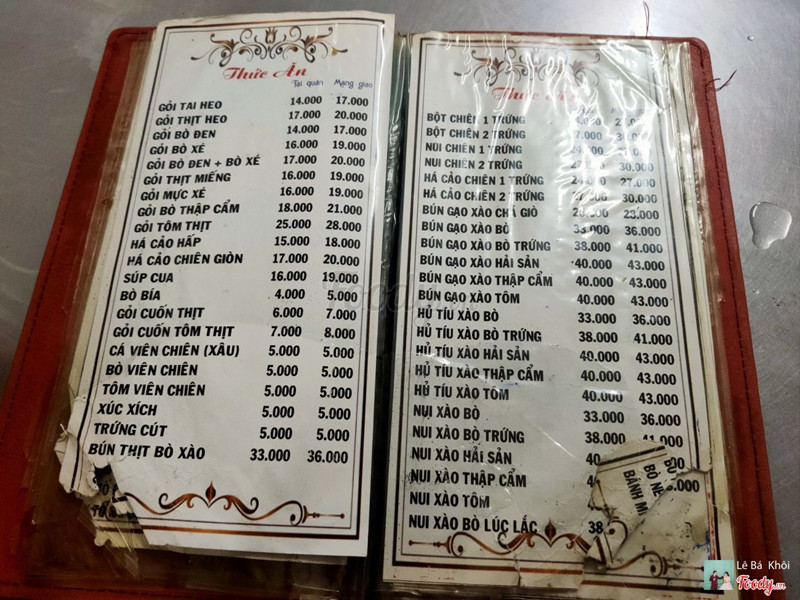 Thức Ăn
Tại quán Mang giao
GỎI TAI HEO 14.000 17.000
GỎI THỊT HEO 17.000 20.000
GỎI BÒ ĐEN 14.000 17.000
GỎI BÒ XÉ 16.000 19.000
GỎI BÒ ĐEN + BÒ XÉ 17.000 20.000
GỎI THỊT MIẾNG 16.000 19.000
GỎI MỰC XÉ 16.000 19.000
GỎI BÒ THẬP CẨM 18.000 21.000
GỎI TÔM THỊT 25.000 28.000
HÁ CẢO HẤP 15.000 18.000
HÁ CẢO CHIÊN GIÒN 17.000 20.000
SÚP CUA 16.000 19.000
BÒ BÍA 4.000 5.000
GỎI CUỐN THỊT 6.000 7.000
GỎI CUỐN TÔM THỊT 7.000 8.000
CÁ VIÊN CHIÊN (XÂU) 5.000 5.000
BÒ VIÊN CHIÊN 5.000 5.000
TÔM VIÊN CHIÊN 5.000 5.000
XÚC XÍCH 5.000 5.000
TRỨNG CÚT 5.000 5.000
BÚN THỊT BÒ XÀO 33.000 36.000
Thức
BỘT CHIÊN 1 TRỨNG
BỘT CHIÊN 2 TRỨNG
NUI CHIÊN 1 TRỨNG
NUI CHIÊN 2 TRỨNG 30.000
HÁ CẢO CHIÊN 1 TRỨNG 24.000 27.000
HÁ CẢO CHIÊN 2 TRỨNG 30.000
BÚN GẠO XÀO CHẢ GIÒ 23.000
BÚN GẠO XÀO BÒ 33.000 36.000
BÚN GẠO XÀO BÒ TRỨNG 38.000 41.000
BÚN GẠO XÀO HẢI SẢN 40.000 43.000
BÚN GẠO XÀO THẬP CẨM 40.000 43.000
BÚN GẠO XÀO TÔM 40.000 43.000
HỦ TÍU XÀO BÒ 33.000 36.000
HỦ TÍU XÀO BÒ TRỨNG 38.000 41.000
HỦ TÍU XÀO HẢI SẢN 40.000 43.000
HỦ TÍU XÀO THẬP CẨM 40.000 43.000
HỦ TÍU XÀO TÔM 40.000 43.000
NUI XÀO BÒ 33.000 36.000
NUI XÀO BÒ TRỨNG 38.000 41.000
NUI XÀO HẢI SẢN 40
NUI XÀO THẬP CẨM 40
NUI XÀO TÔM
NUI XÀO BÒ LÚC LẮC 38
BÒ NÉ
BÁNH MÌ
Lê Bá Khôi
Foody.vn